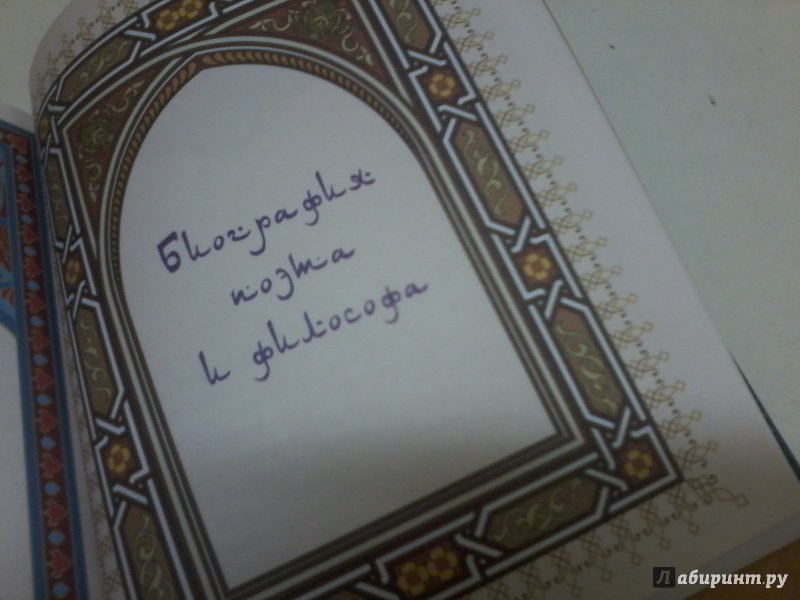 Биография
поэта
и философа
Лабиринт.ру